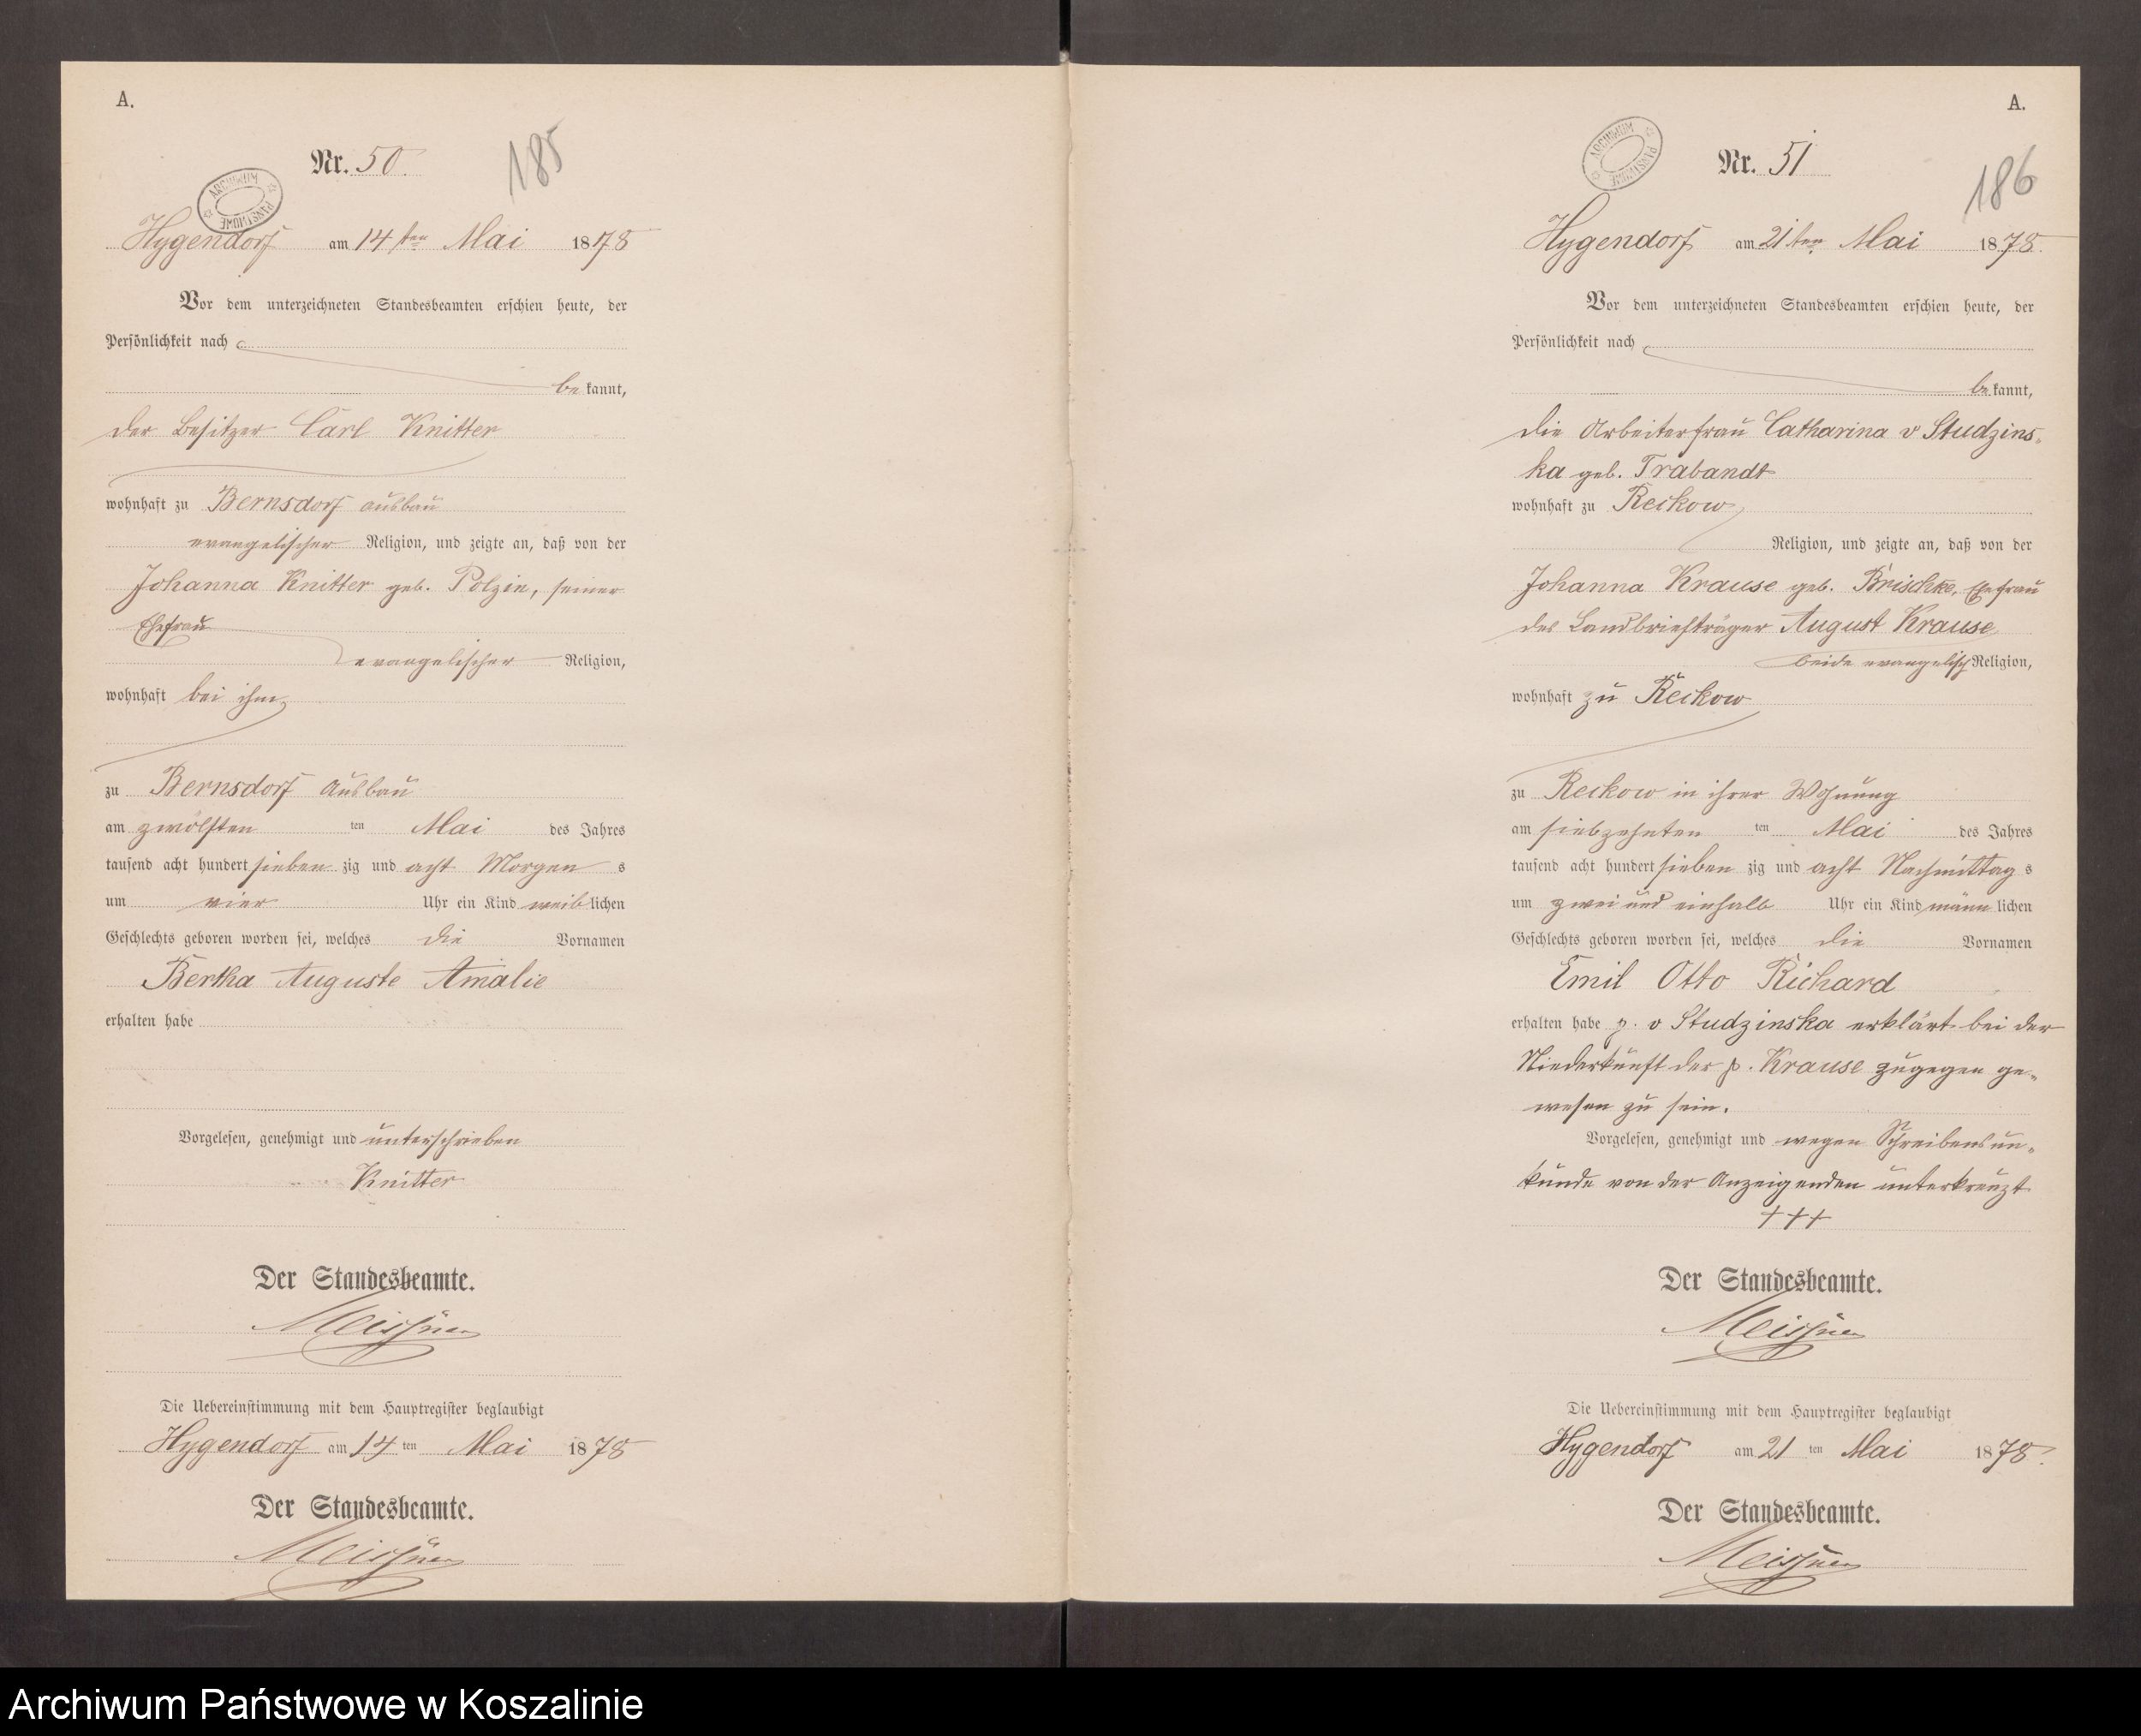 A.
Nr. 50.
185
ARCHIWUM PAŃSTWOWE
Hygendorf am 14 ten Mai 1878
Vor dem unterzeichneten Standesbeamten erschien heute, der
Persönlichkeit nach
bekannt,
der Besitzer Carl Knitter
wohnhaft zu Bernsdorf Ausbau
evangelischer Religion, und zeigte an, daß von der
Johanna Knitter geb. Polzin, seiner
Ehefrau
evangelischer Religion,
wohnhaft bei ihm
zu Bernsdorf Ausbau
am zwölften ten Mai des Jahres
tausend acht hundert sieben zig und acht Morgen s
um vier Uhr ein Kind weiblichen
Geschlechts geboren worden sei, welches die Vornamen
Bertha Auguste Amalie
erhalten habe
Vorgelesen, genehmigt und unterschrieben
Knitter
Der Standesbeamte.
Meissner
Die Uebereinstimmung mit dem Hauptregister beglaubigt
Hygendorf am 14 ten Mai 1878
Der Standesbeamte.
Meissner
A.
Nr. 51
186
ARCHIWUM PAŃSTWOWE
Hygendorf am 21 ten Mai 1878.
Vor dem unterzeichneten Standesbeamten erschien heute, der
Persönlichkeit nach
bekannt,
die Arbeiterfrau Catharina v Studzins-
ka geb. Trabandt
wohnhaft zu Reckow
Religion, und zeigte an, daß von der
Johanna Krause geb. Brischke, Ehefrau
des Landbriefträger August Krause
beide evangelisch Religion,
wohnhaft zu Reckow
zu Reckow in ihrer Wohnung
am siebzehnten ten Mai des Jahres
tausend acht hundert sieben zig und acht Nachmittag s
um zwei und einhalb Uhr ein Kind männlichen
Geschlechts geboren worden sei, welches die Vornamen
Emil Otto Richard
erhalten habe p. v Studzinska erklärt bei der
Niederkunft der p. Krause zugegen ge-
wesen zu sein.
Vorgelesen, genehmigt und wegen Schreibensun-
kunde von der Anzeigenden unterkreuzt
+++
Der Standesbeamte.
Meissner
Die Uebereinstimmung mit dem Hauptregister beglaubigt
Hygendorf am 21 ten Mai 1878.
Der Standesbeamte.
Meissner
Archiwum Państwowe w Koszalinie